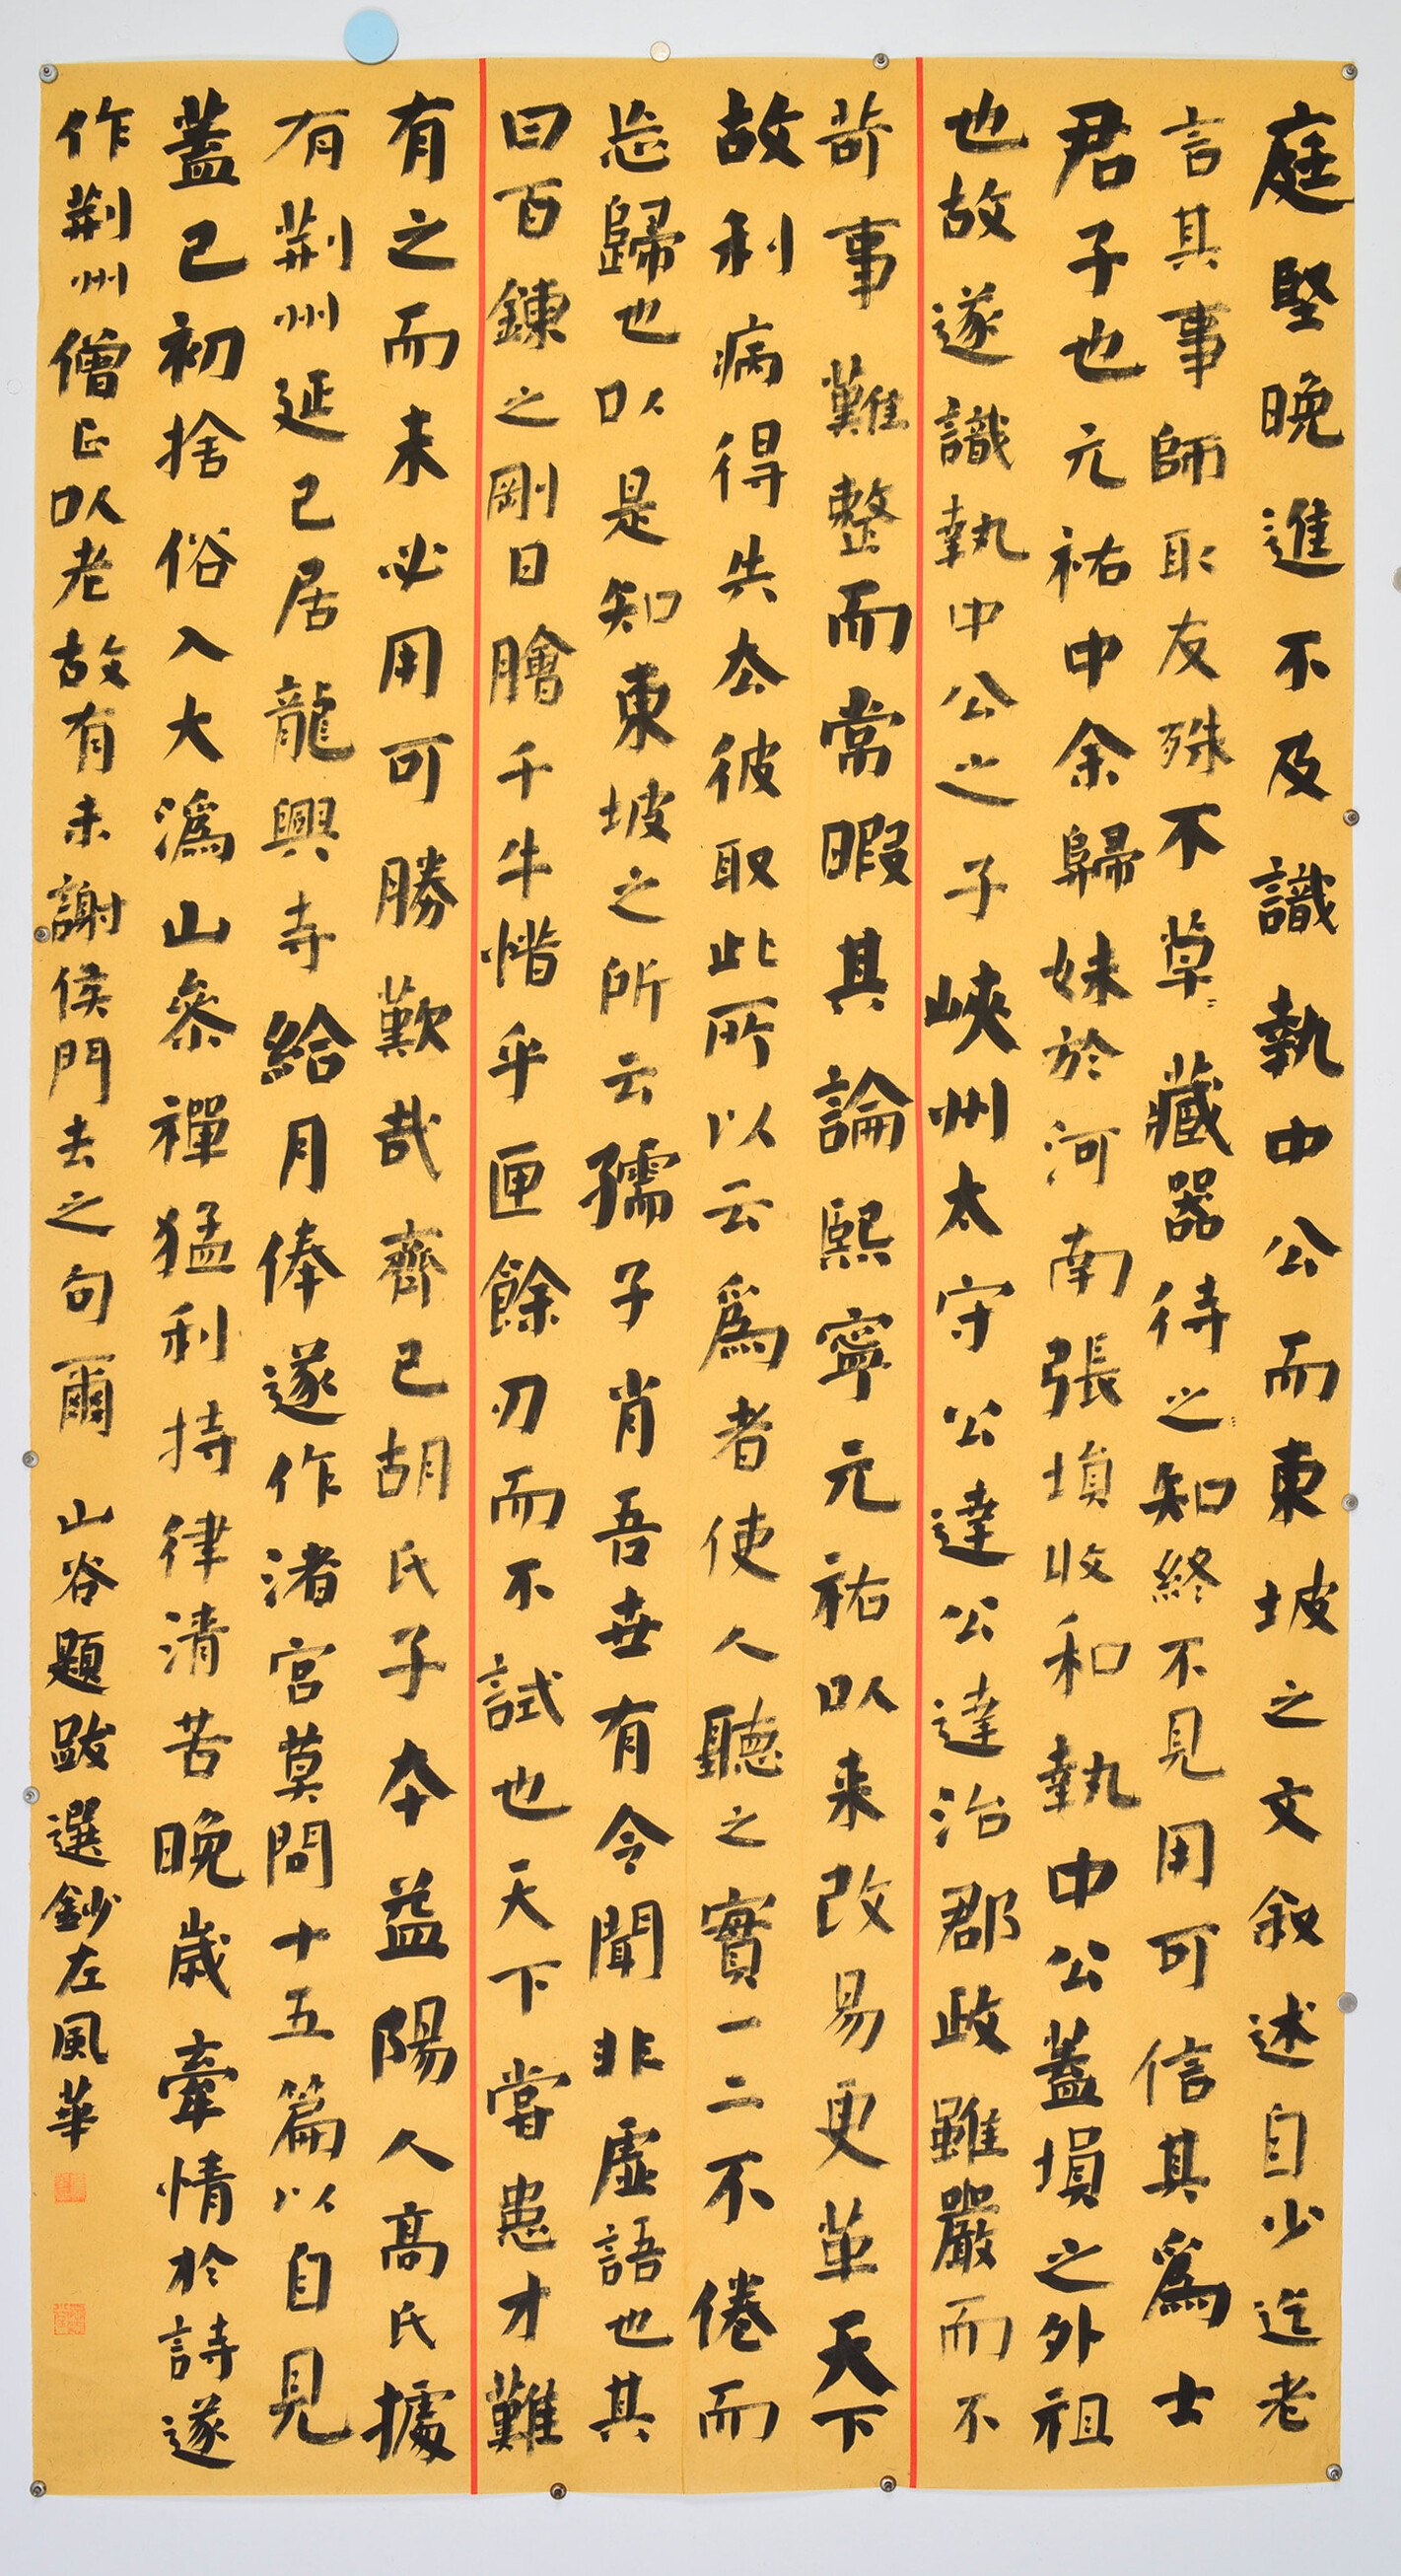 庭堅晚進不及識執中公而東坡之文叙述自少迄老
言其事師取友殊不草〻藏器待之知終不見用可信其為士
君子也元祐中余歸妹於河南張塤收和執中公蓋塤之外祖
也故遂識執中公之子峽州太守公達公達治郡政雖嚴而不
苛事難整而常暇其論熙寧元祐以来改易更革天下
故利病得失去彼取此所以云為者使人聽之實一二不倦而
忘歸也以是知東坡之所云孺子肖吾世有令聞非虛語也其
曰百鍊之剛日膾千牛惜乎匣餘刃而不試也天下嘗患才難
有之而未必用可勝歎哉齊己胡氏子本益陽人高氏據
有荆州延己居龍興寺給月俸遂作渚宮莫問十五篇以自見
蓋己初捨俗入大溈山參禪猛利持律清苦晚歲牽情於詩遂
作荆州僧正以老故有未謝侯門去之句爾 山谷題跋選鈔左風華